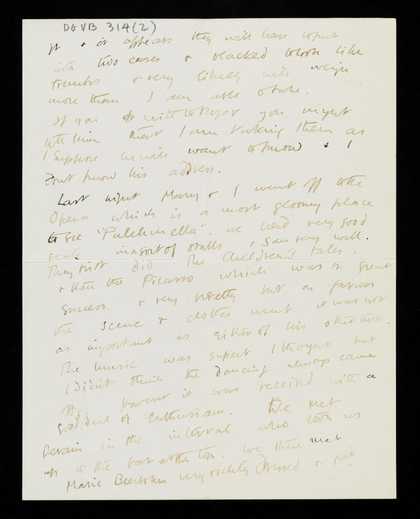 DGVB 314(2)
it & it appears they will have to put
into two cases & blacked look like
trunks & very likely will weigh
more than I am able to take.
If you to Roger you might
tell him that I am taking them as
I suppose he will want to know & I
don't know his address.
Last night Mary & I went off to the
Opera which is a most gloomy place
to see 'Pulchinella'. We had very good
seats in a sort of stalls & saw very well.
They first did The Children's Tales.
& then the Picasso which was a great
success & very pretty but as far as
the scene & clothes went it was not
as important as either of his other two.
The music was superb I thought but
I didn't think the dancing always came
off. However it was received with a
good deal of enthusiasm. We met
Derain in the interval who took us
up to the bar at the top. We then met
Marie Beerbohm very richly dressed &